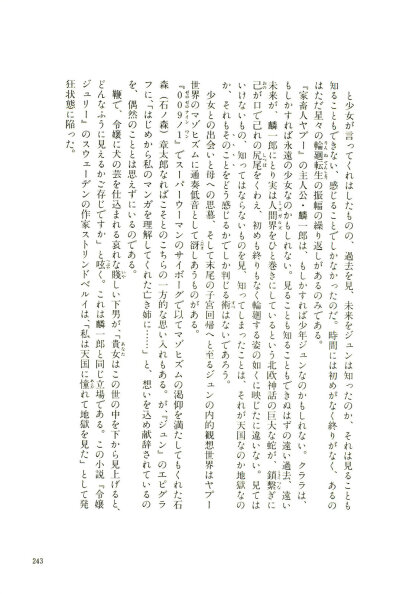 と少女が言ってくれはしたものの、過去を見、未来をジュンは知ったのか、それは見ることも
知ることもできない、感じることでしかなかったのだ。時間には初めがなく終りがなく、あるの
はただ星々の輪廻転生の振幅の繰り返しがあるのみである。
『家畜人ヤプー』の主人公・麟一郎は、もしかすれば少年ジュンなのかもしれない。クララは、
もしかすれば永遠の少女なのかもしれない。見ることも知ることもできぬはずの遠い過去、遠い
未来が、麟一郎にとり実は人間界をひと巻きにしているという北欧神話の巨大な蛇が、鎖繋ぎに
己が口で己れの尻尾をくわえ、初めも終りもなく輪廻する姿の如くに映じたに違いない。見ては
いけないもの、知ってはならないものを見、知ってしまったことは、それが天国なのか地獄なの
か、それもそのことをどう感じるかでしか判じる術はないであろう。
少女との出会いと母への思慕、そして末尾の子宮回帰へと至るジュンの内的観想世界はヤプー
世界のマゾヒズムに通奏低音として谺しあうものがある。
『009ノ1』でスーパーウーマンのサイボーグで以てマゾヒズムの渇仰を満たしてもくれた石
森（石ノ森）章太郎なればこそとのこちらの一方的な思い入れもある。が『ジュン』のエピグラ
フに、「はじめから私のマンガを理解してくれた亡き姉に……」と、想いを込め献辞されているの
を、偶然のこととは思えずにいるのである。
鞭で、令嬢に犬の芸を仕込まれる哀れな賤しい下男が、「貴女はこの世の中を下から見上げると、
どんなふうに見えるかご存じですか」と呟く。これは麟一郎と同じ立場である。この小説『令嬢
ジュリー』のスウェーデンの作家ストリンドベルイは、「私は天国に憧れて地獄を見た」として発
狂状態に陥った。
243